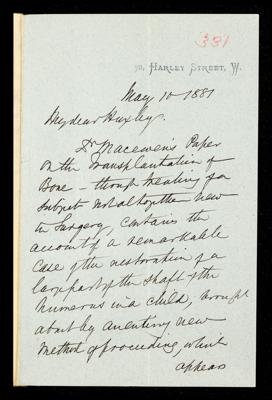 381
HARLEY STREET, W.
May 10 1881
My dear Huxley.
Dr Macewen's Paper
on the Transplantation of
Bone – though treating of a
subject not altogether new
to Surgery, contains the
account of a remarkable
case of the restoration of a
large part of the shaft of the
humerus in a child, brought
about by an entirely new
method of proceeding, which
appears